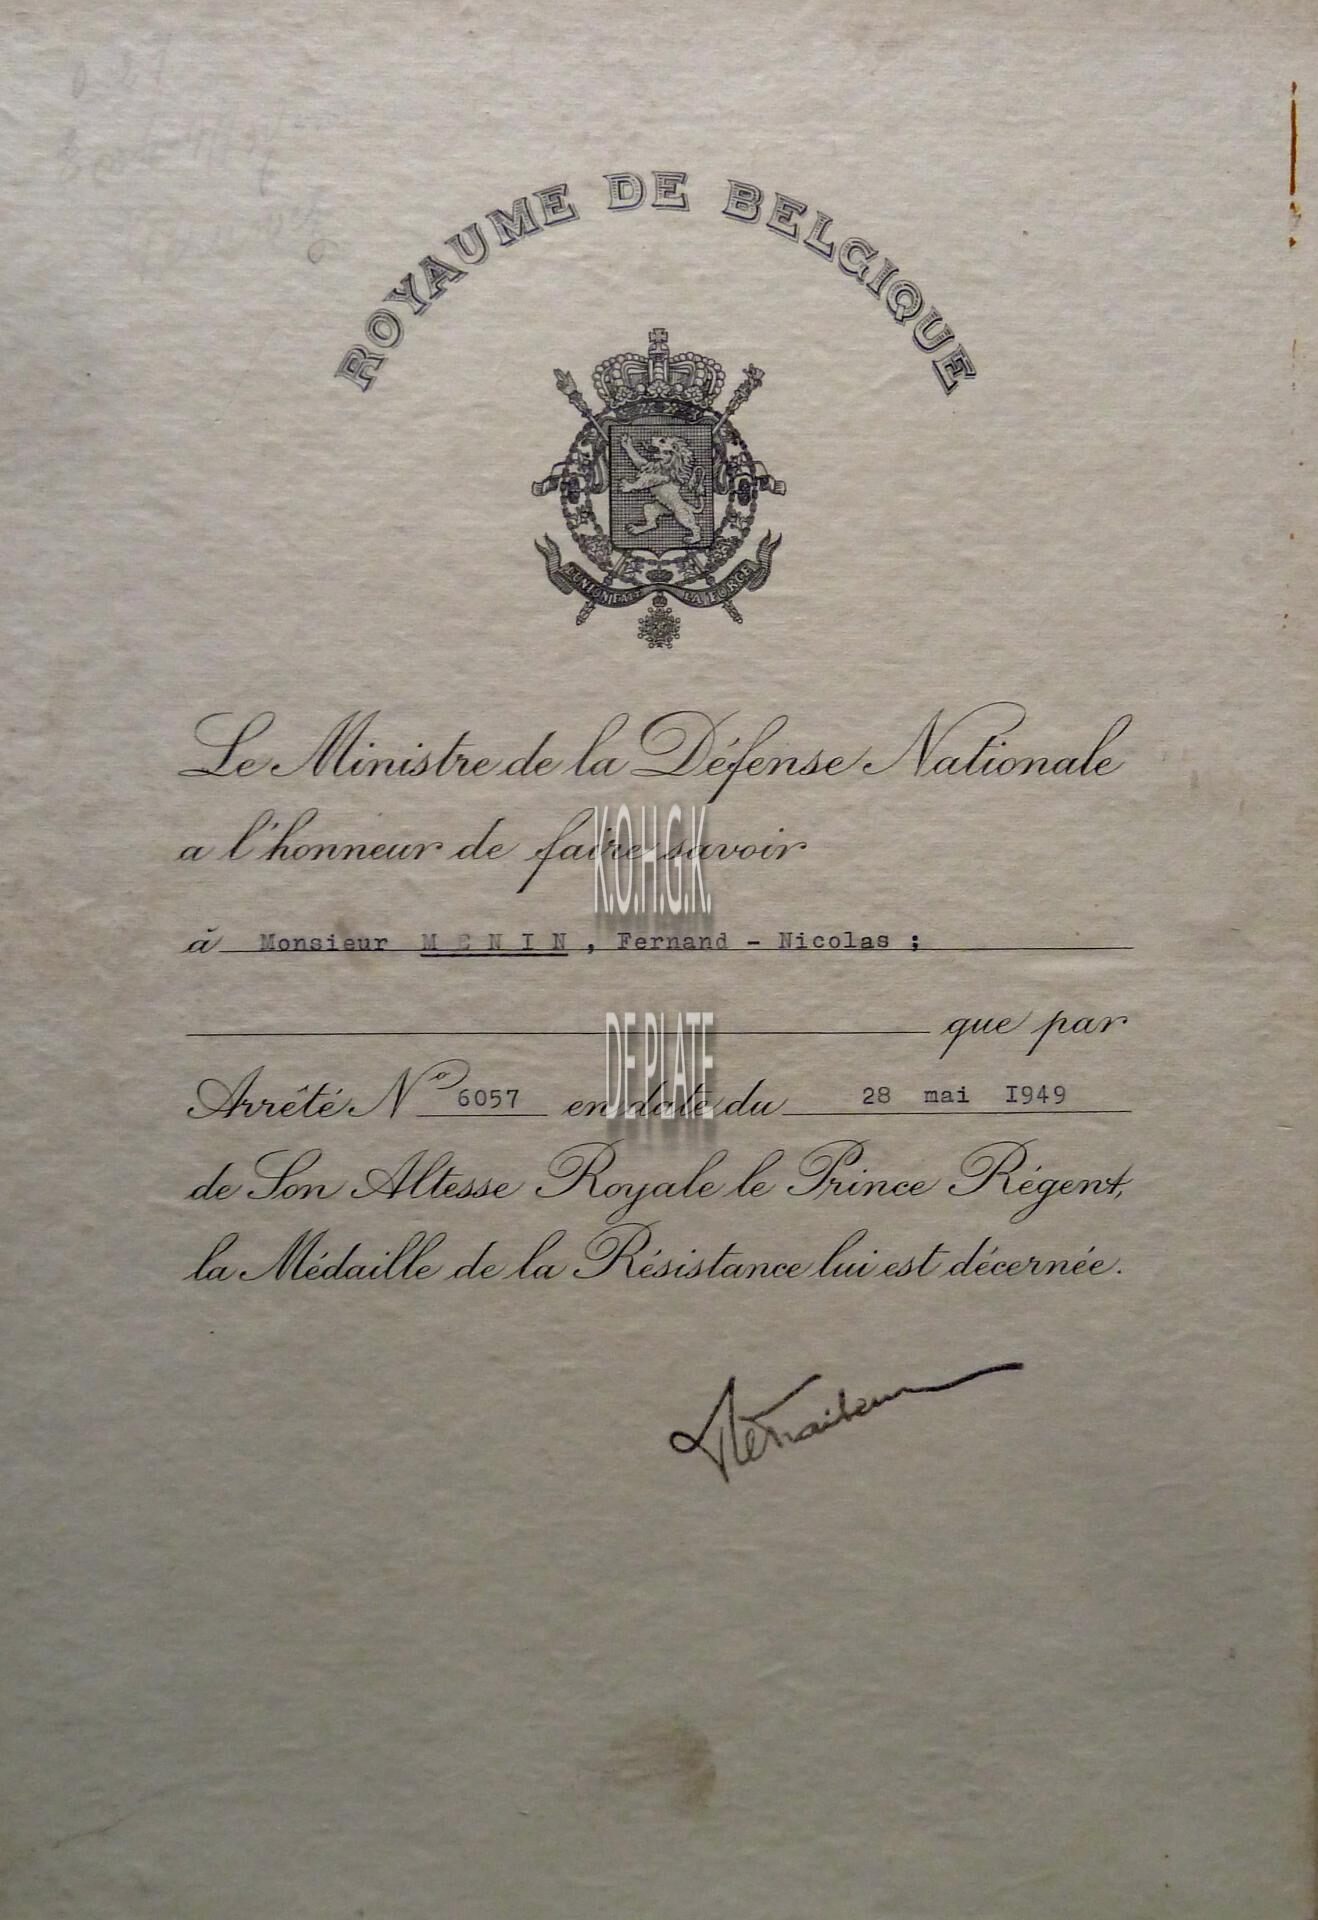 ROYAUME DE BELGIQUE
L'UNION FAIT LA FORCE
Le Ministre de la Défense Nationale
a l'honneur de faire savoir
K.O.H.G.K.
à Monsieur MENIN, Fernand - Nicolas ;
que par
DE PLATE
Arrêté No 6057 en date du 28 mai I949
de Son Altesse Royale le Prince Régent,
la Médaille de la Résistance lui est décernée.